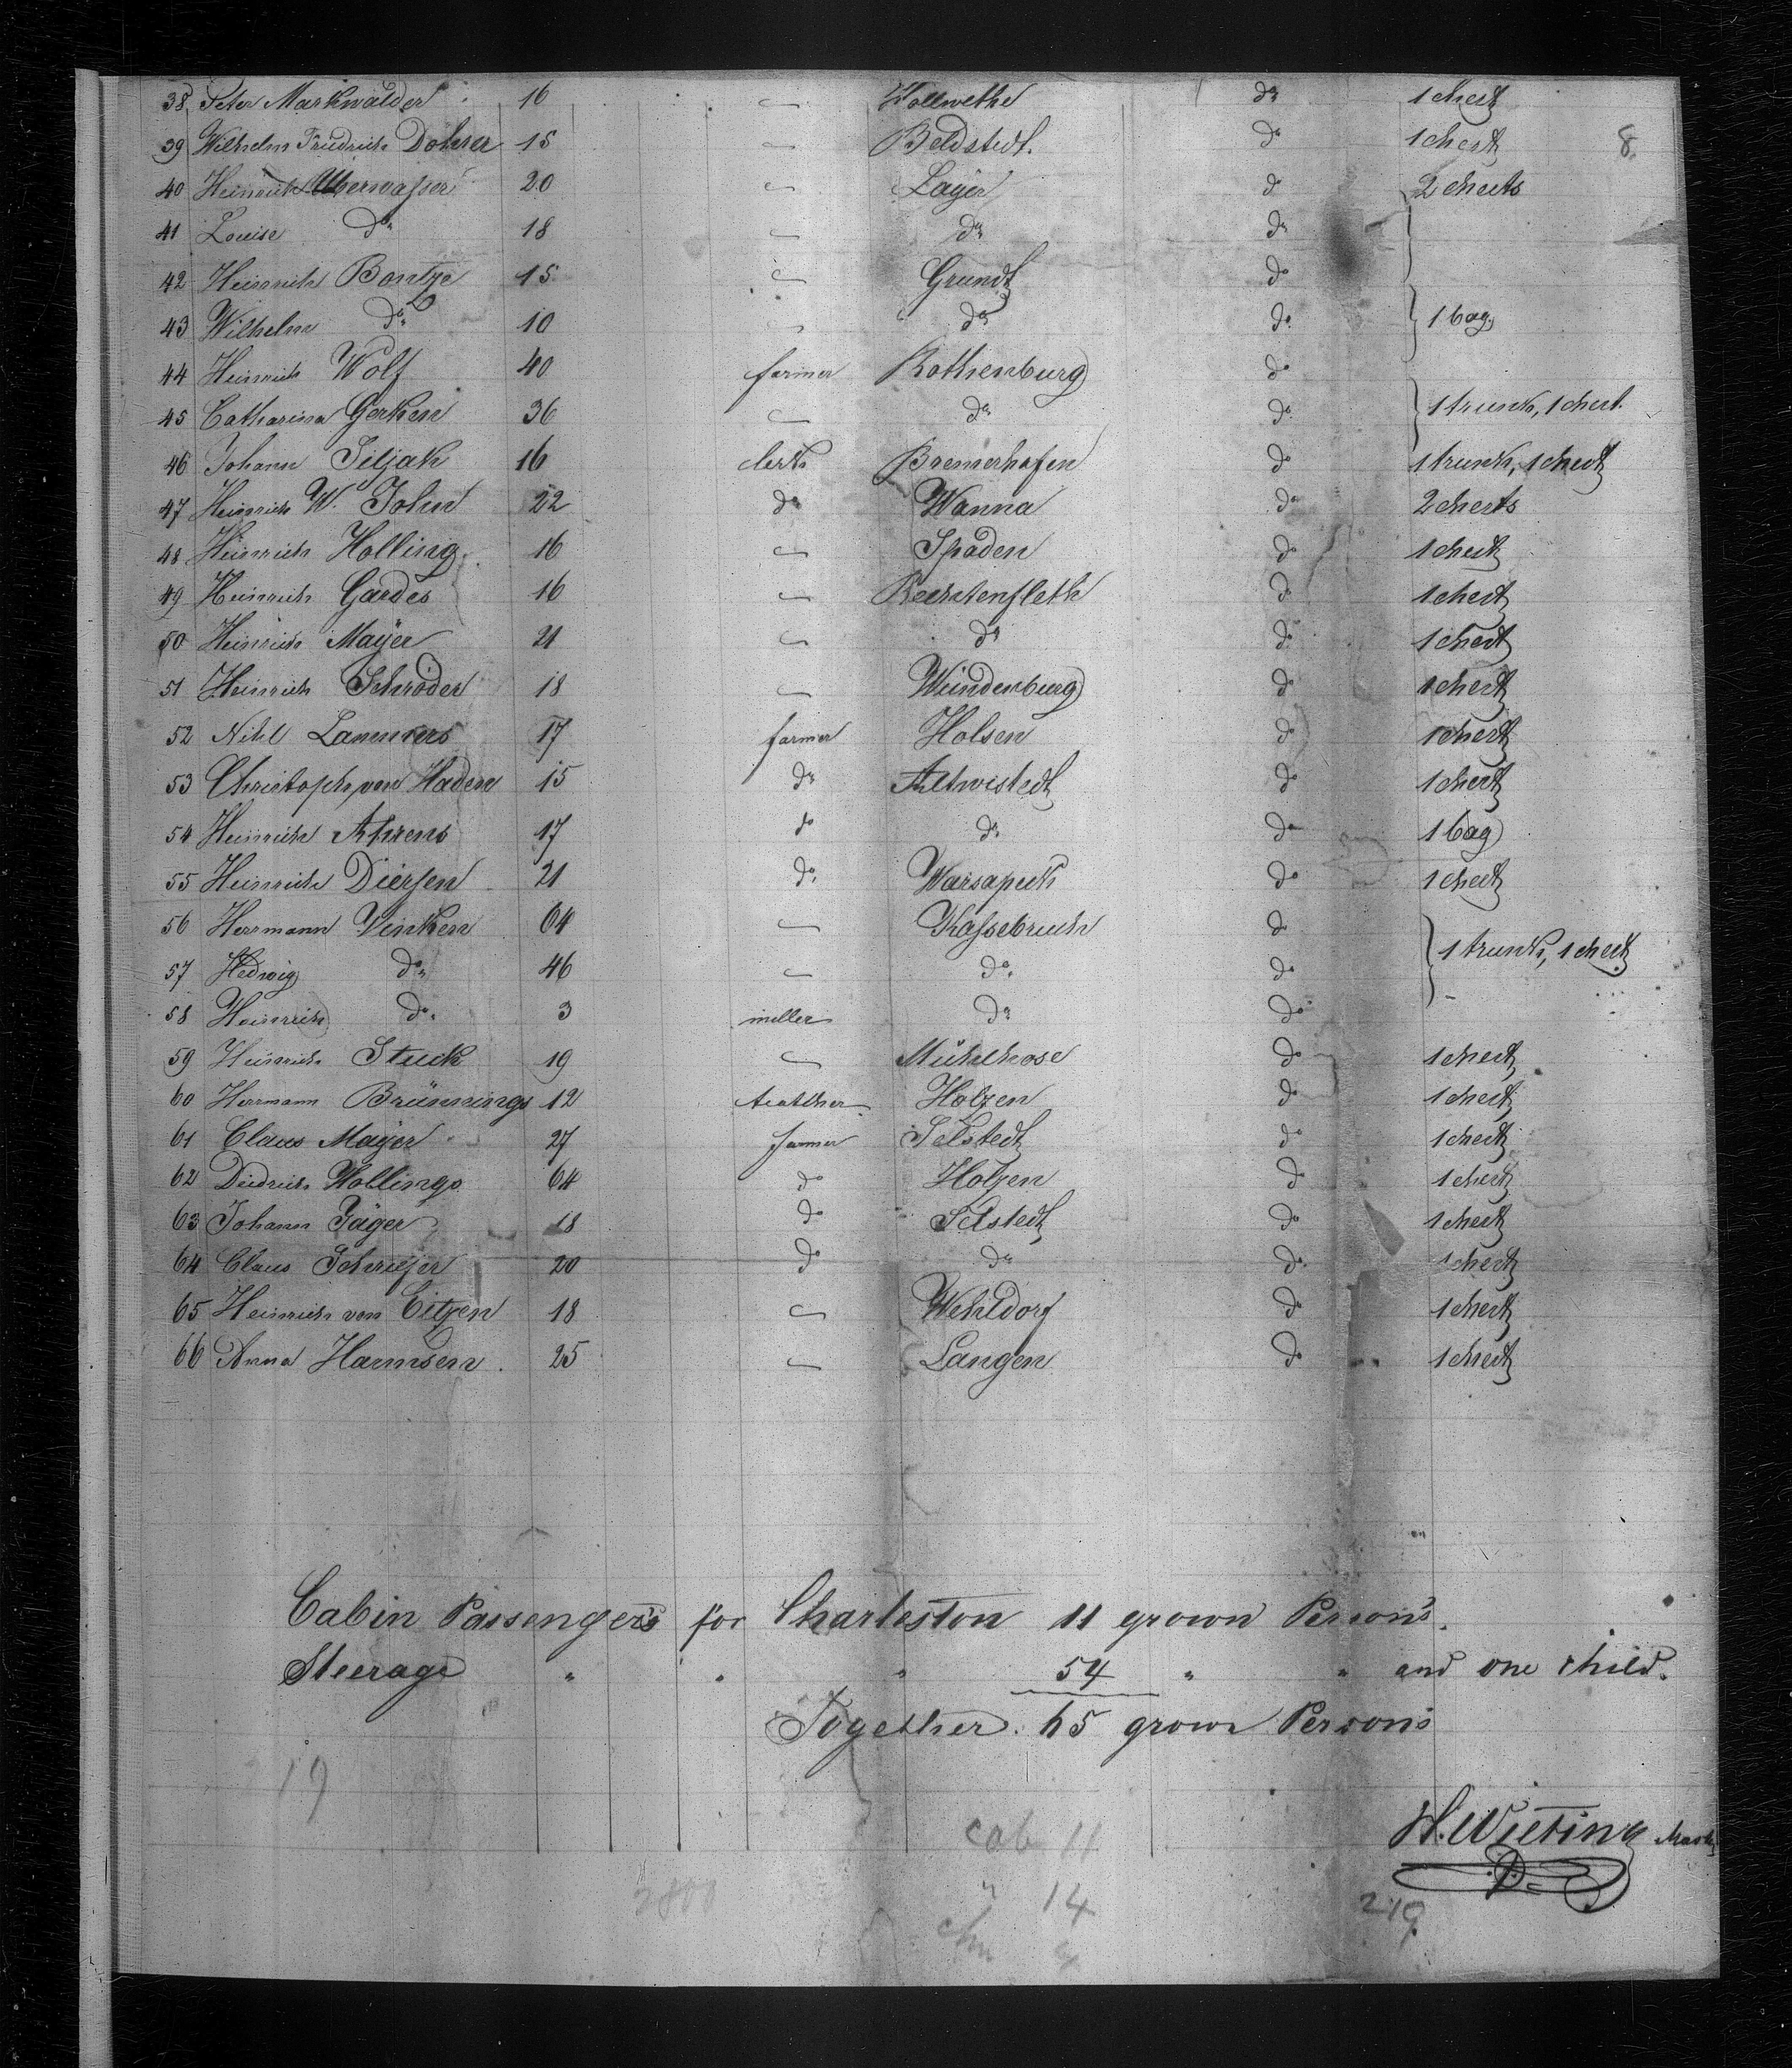 38 Peter Markwalder 16 — Wollwethe do 1 chest
39 Wilhelm Friedrich Dohrer 15 — Beldstedt. do 1 chest 8.
40 Heinrich Uberwasser 20 — Layer do 2 chests
41 Louise do 18 — do do
42 Heinrich Bontze 15 — Grundt do
43 Wilhelm do 10 do do 1 bag
44 Heinrich Wolf 40 farmer Rothenburg do
45 Catharina Gerken 36 — do do 1 trunk, 1 chest.
46 Johann Siljak 16 clerk Bremerhafen do 1 trunk, 1 chest
47 Heinrich W. John 22 do Wanna do 2 chests
48 Heinrich Holling 16 — Spaden do 1 chest
49 Heinrich Gardes 16 — Rechtenfleth do 1 chest
50 Heinrich Mayer 21 — do do 1 chest
51 Heinrich Schröder 18 — Weindenburg do 1 chest
52 Nihl Lammers 17 farmer Holsen do 1 chest
53 Christoph von Haden 15 do Altwistedt do 1 chest
54 Heinrich Ahrens 17 do do do 1 bag
55 Heinrich Diersen 21 do Warsapeck do 1 chest
56 Herrmann Vinken 64 — Kassebruch do
57 Hedwig do 46 — do do 1 trunk, 1 chest
58 Heinrich do 3 miller do do
59 Heinrich Stuck 19 — Mühlhose do 1 chest
60 Herrmann Brünnings 12 Holzen do 1 chest
61 Claus Mayer 27 farmer Selstedt do 1 chest
62 Diedrich Wollings 64 do Holzen do 1 chest
63 Johann Jäger 18 do Selstedt do 1 chest
64 Claus Schriefer 20 do do do 1 chest
65 Heinrich von Eitzen 18 — Wehldorf do 1 chest
66 Anna Harmsen 25 — Langen do 1 chest
Cabin Passengers for Charleston 11 grown Person's.
Steerage " " " 54 " " and one child.
Together. 65 grown Person's
19
H. Wieting Mastr
cab 11
2800 " 14 219